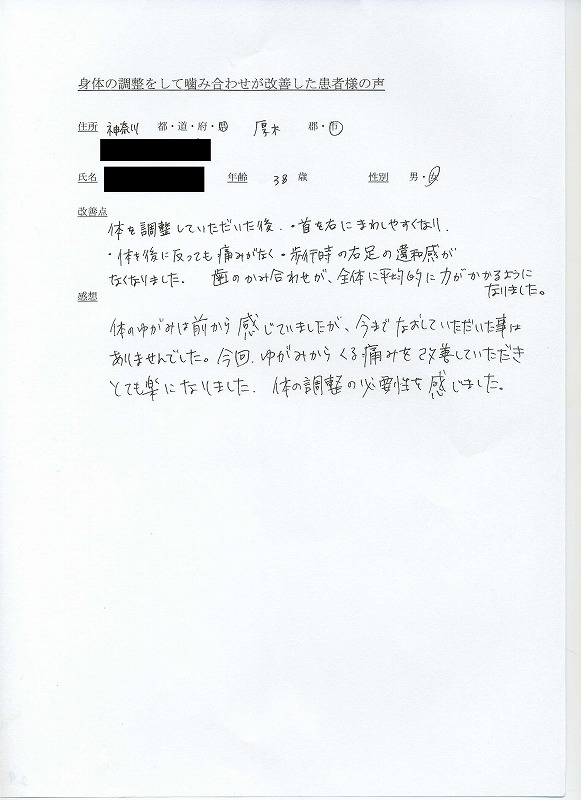 身体の調整をして噛み合わせが改善した患者様の声
住所 神奈川 都・道・府・県 厚木 郡・市
氏名 年齢 38 歳 性別 男・女
改善点
体を調整していただいた後、・首を右にまわしやすくなり、
・体を後に反っても痛みがなく・歩行時の右足の違和感が
なくなりました。 歯のかみ合わせが、全体に平均的に力がかかるように
なりました。
感想
体のゆがみは前から感じていましたが、今までなおしていただいた事は
ありませんでした。今回、ゆがみからくる痛みを改善していただき
とても楽になりました。体の調整の必要性を感じました。